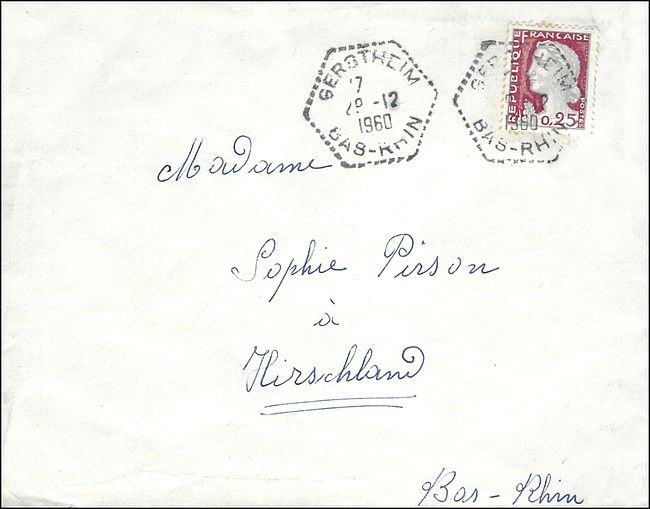 GERSTHEIM
17
28 -12
1960
BAS-RHIN
GERSTHEIM
12
1960
BAS-RHIN
REPUBLIQUE FRANÇAISE
0,25
Madame
Sophie Pirson
à
Hirschland
Bas - Rhin